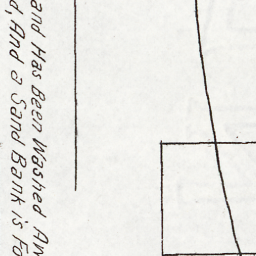 and Has Been Washed Aw
d, And a Sand Bank is Fo